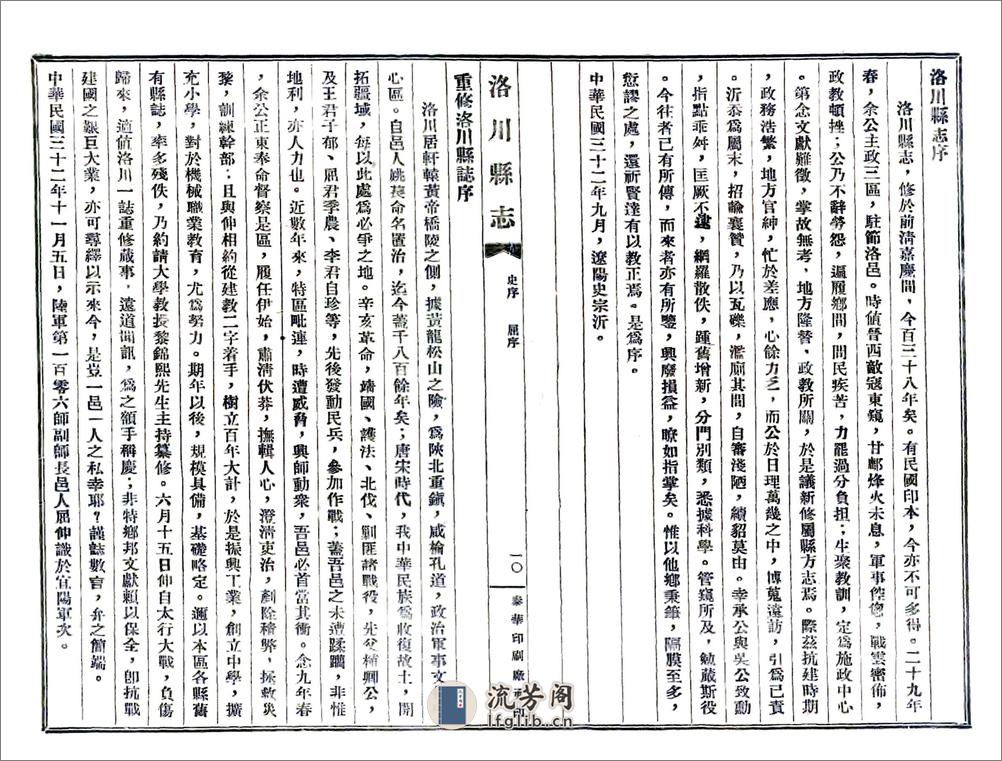 洛川縣志序
洛川縣志，修於前淸嘉慶間，今百三十八年矣。有民國印本，今亦不可多得。二十九年
春，余公主政三區，駐節洛邑。時値晉西敵寇東窺，甘鄜烽火未息，軍事倥傯，戰雲密佈，
政教頓挫；公乃不辭勞怨，遍履鄉間，問民疾苦，力罷過分負担；生聚教訓，定爲施政中心
。第念文獻難徵，掌故無考，地方隆替、政教所關，於是議新修屬縣方志焉。際茲抗建時期
，政務浩繁，地方官紳，忙於差應，心餘力乏，而公於日理萬幾之中，博蒐遠訪，引爲己責
。沂忝爲屬末，招諭襄贊，乃以瓦礫，濫廁其間，自審淺陋，續貂莫由。幸承公與吳公致勳
，指點乖舛，匡厥不逮，網羅散佚，踵舊增新，分門別類，悉據科學。管窺所及，勉蕆斯役
。今往者已有所傳，而來者亦有所鑒，興廢損益，瞭如指掌矣。惟以他鄉秉筆，隔膜至多，
愆謬之處，還祈賢達有以教正焉。是爲序。
中華民國三十二年九月，遼陽史宗沂。
洛川縣志
史序
屈序
一〇
泰華印刷廠
印
重修洛川縣誌序
洛川居軒轅黃帝橋陵之側，據黃龍松山之險，爲陝北重鎭，咸榆孔道，政治軍事文
心區。自邑人姚萇命名置治，迄今蓋千八百餘年矣；唐宋時代，我中華民族爲收復故土，開
拓疆域，每以此處爲必爭之地。辛亥革命，靖國、護法、北伐、剿匪諸戰役，先父楠卿公，
及王君子郁、屈君季農、李君自珍等，先後發動民兵，參加作戰；蓋吾邑之未遭蹂躪，非惟
地利，亦人力也。近數年來，特區毗連，時遭威脅，興師動衆，吾邑必首當其衝。念九年春
，余公正東奉命督察是區，履任伊始，肅淸伏莽，撫輯人心，澄淸吏治，剷除積弊，拯救災
黎，訓練幹部；且與伸相約從建教二字着手，樹立百年大計，於是振興工業，創立中學，擴
充小學，對於機械職業教育，尤爲努力。期年以後，規模具備，基礎略定。邇以本區各縣舊
有縣誌，率多殘佚，乃約請大學教長黎錦熙先生主持纂修。六月十五日伸自太行大戰，負傷
歸來，適値洛川一誌重修蕆事，遠道聞訊，爲之額手稱慶；非特鄉邦文獻賴以保全，卽抗戰
建國之艱巨大業，亦可尋繹以示來今，是豈一邑一人之私幸耶？謹誌數言，弁之簡端。
中華民國三十二年十一月五日，陸軍第一百零六師副師長邑人屈伸識於宜陽軍次。
流芳阁
lfglib.cn